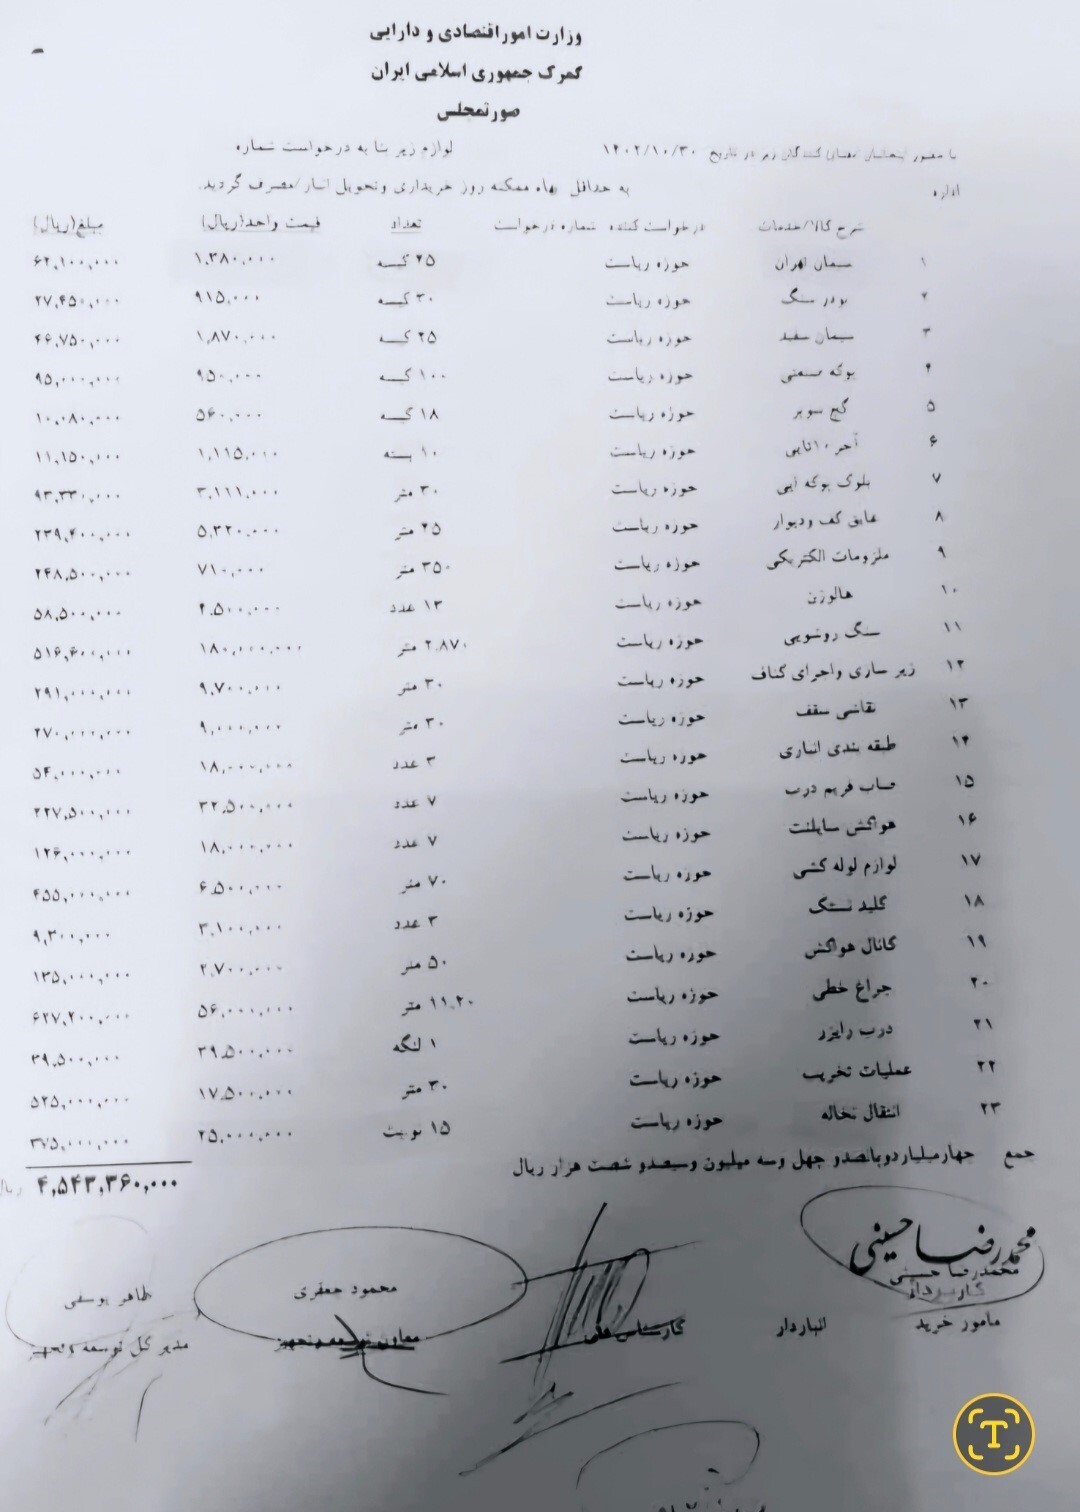 وزارت امور اقتصادی و دارایی
گمرک جمهوری اسلامی ایران
صورتمجلس
با حضور امضاء کنندگان زیر در تاریخ ۱۴۰۲/۱۰/۳۰ لوازم زیر بنا به درخواست شماره
اداره به حداقل بهاء ممکنه روز خریداری وتحویل انبار/مصرف گردید.
شرح کالا/خدمات درخواست کننده شماره درخواست تعداد قیمت واحد(ریال) مبلغ(ریال)
۱ سیمان تهران حوزه ریاست ۴۵ کیسه ۱,۳۸۰,۰۰۰ ۶۲,۱۰۰,۰۰۰
۲ پودر سنگ حوزه ریاست ۳۰ کیسه ۹۱۵,۰۰۰ ۲۷,۴۵۰,۰۰۰
۳ سیمان سفید حوزه ریاست ۲۵ کیسه ۱,۸۷۰,۰۰۰ ۴۶,۷۵۰,۰۰۰
۴ پوکه صنعتی حوزه ریاست ۱۰۰ کیسه ۹۵۰,۰۰۰ ۹۵,۰۰۰,۰۰۰
۵ گچ سوپر حوزه ریاست ۱۸ کیسه ۵۶۰,۰۰۰ ۱۰,۰۸۰,۰۰۰
۶ آجر ۱۰تایی حوزه ریاست ۱۰ بسته ۱,۱۱۵,۰۰۰ ۱۱,۱۵۰,۰۰۰
۷ بلوک پوکه ایی حوزه ریاست ۳۰ متر ۳,۱۱۱,۰۰۰ ۹۳,۳۳۰,۰۰۰
۸ عایق کف ودیوار حوزه ریاست ۴۵ متر ۵,۳۲۰,۰۰۰ ۲۳۹,۴۰۰,۰۰۰
۹ ملزومات الکتریکی حوزه ریاست ۳۵۰ متر ۷۱۰,۰۰۰ ۲۴۸,۵۰۰,۰۰۰
۱۰ هالوژن حوزه ریاست ۱۳ عدد ۴,۵۰۰,۰۰۰ ۵۸,۵۰۰,۰۰۰
۱۱ سنگ روشویی حوزه ریاست ۲,۸۷۰ متر ۱۸۰,۰۰۰,۰۰۰ ۵۱۶,۶۰۰,۰۰۰
۱۲ زیر سازی واجرای کناف حوزه ریاست ۳۰ متر ۹,۷۰۰,۰۰۰ ۲۹۱,۰۰۰,۰۰۰
۱۳ نقاشی سقف حوزه ریاست ۳۰ متر ۹,۰۰۰,۰۰۰ ۲۷۰,۰۰۰,۰۰۰
۱۴ طبقه بندی انباری حوزه ریاست ۳ عدد ۱۸,۰۰۰,۰۰۰ ۵۴,۰۰۰,۰۰۰
۱۵ ساب فریم درب حوزه ریاست ۷ عدد ۳۲,۵۰۰,۰۰۰ ۲۲۷,۵۰۰,۰۰۰
۱۶ هواکش سایلنت حوزه ریاست ۷ عدد ۱۸,۰۰۰,۰۰۰ ۱۲۶,۰۰۰,۰۰۰
۱۷ لوازم لوله کشی حوزه ریاست ۷۰ متر ۶,۵۰۰,۰۰۰ ۴۵۵,۰۰۰,۰۰۰
۱۸ کلید تستک حوزه ریاست ۳ عدد ۳,۱۰۰,۰۰۰ ۹,۳۰۰,۰۰۰
۱۹ کانال هواکش حوزه ریاست ۵۰ متر ۲,۷۰۰,۰۰۰ ۱۳۵,۰۰۰,۰۰۰
۲۰ چراغ خطی حوزه ریاست ۱۱,۲۰ متر ۵۶,۰۰۰,۰۰۰ ۶۲۷,۲۰۰,۰۰۰
۲۱ درب رایزر حوزه ریاست ۱ لنگه ۳۹,۵۰۰,۰۰۰ ۳۹,۵۰۰,۰۰۰
۲۲ عملیات تخریب حوزه ریاست ۳۰ متر ۱۷,۵۰۰,۰۰۰ ۵۲۵,۰۰۰,۰۰۰
۲۳ انتقال نخاله حوزه ریاست ۱۵ نوبت ۲۵,۰۰۰,۰۰۰ ۳۷۵,۰۰۰,۰۰۰
جمع چهارمیلیاردوپانصدو چهل وسه میلیون وسیصدو شصت هزار ریال ۴,۵۴۳,۳۶۰,۰۰۰ ریال
محمدرضا حسینی
محمدرضا حسینی محمود جعفری طاهر یوسفی
کارپرداز
مامور خرید انباردار کارشناس فنی معاون توسعه وتجهیز مدیر کل توسعه وتجهیز